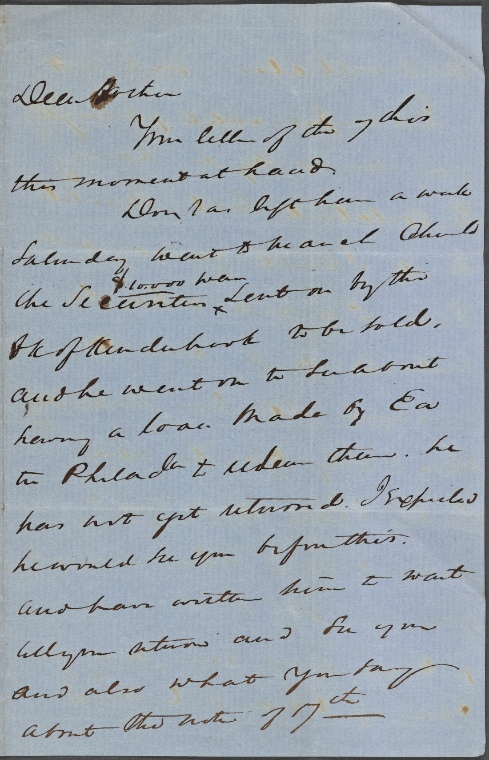 Dear
Your letter of the 7 this
this moment at hand.
left here a week
Saturday went to
$10.000 were
the Securities x Sent on by the
Bk of Kinderhook to be sold.
and he went on to See about
having a loan made by
in Philada to redeem them. he
has not yet returned. I expected
he would See you before this.
and have written him to wait
till you return and See you
and also what you Say
about the note of 17th